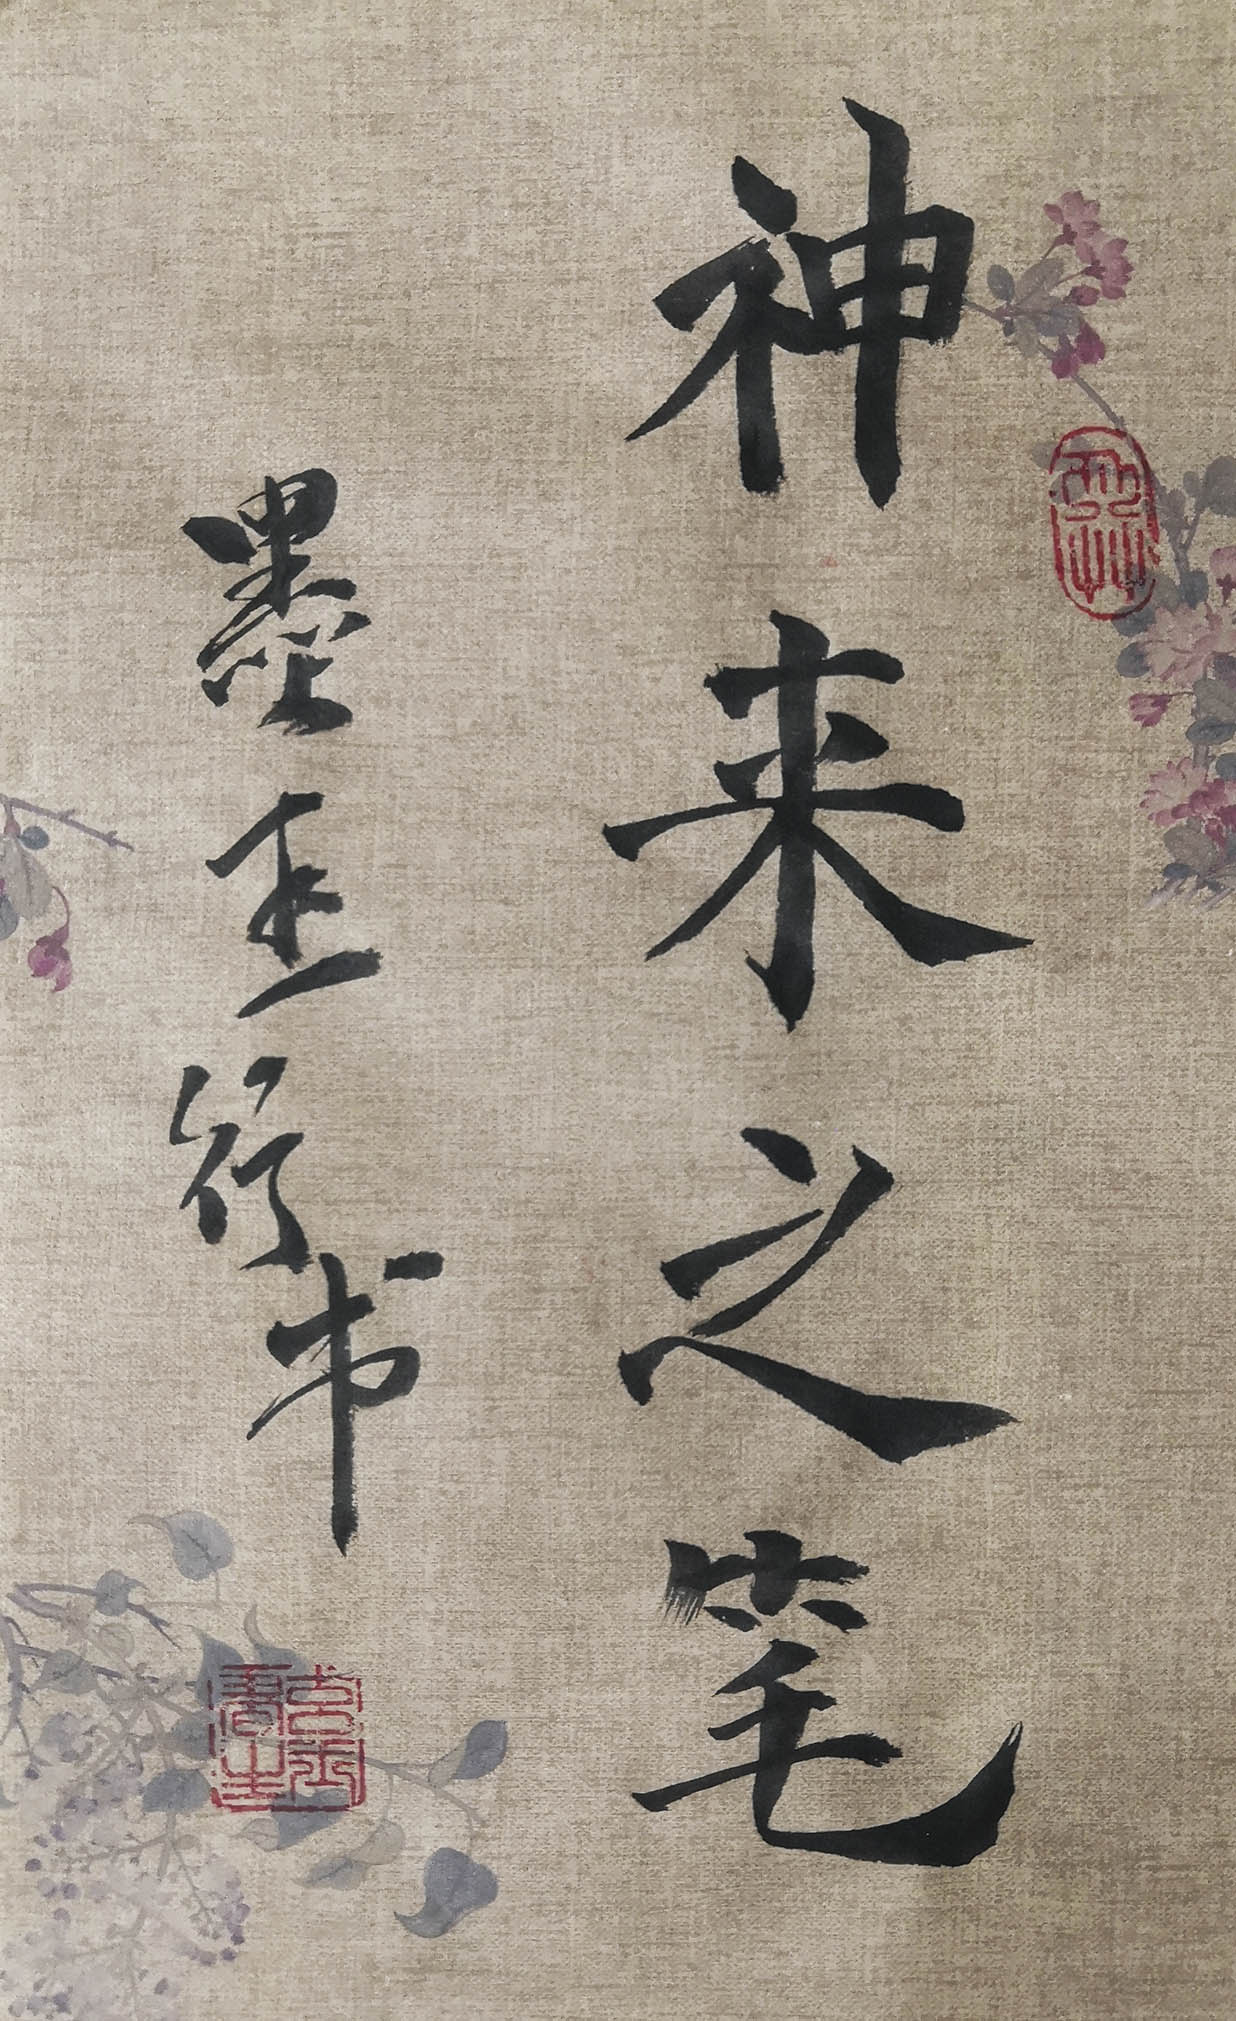 神来之笔
墨 行书